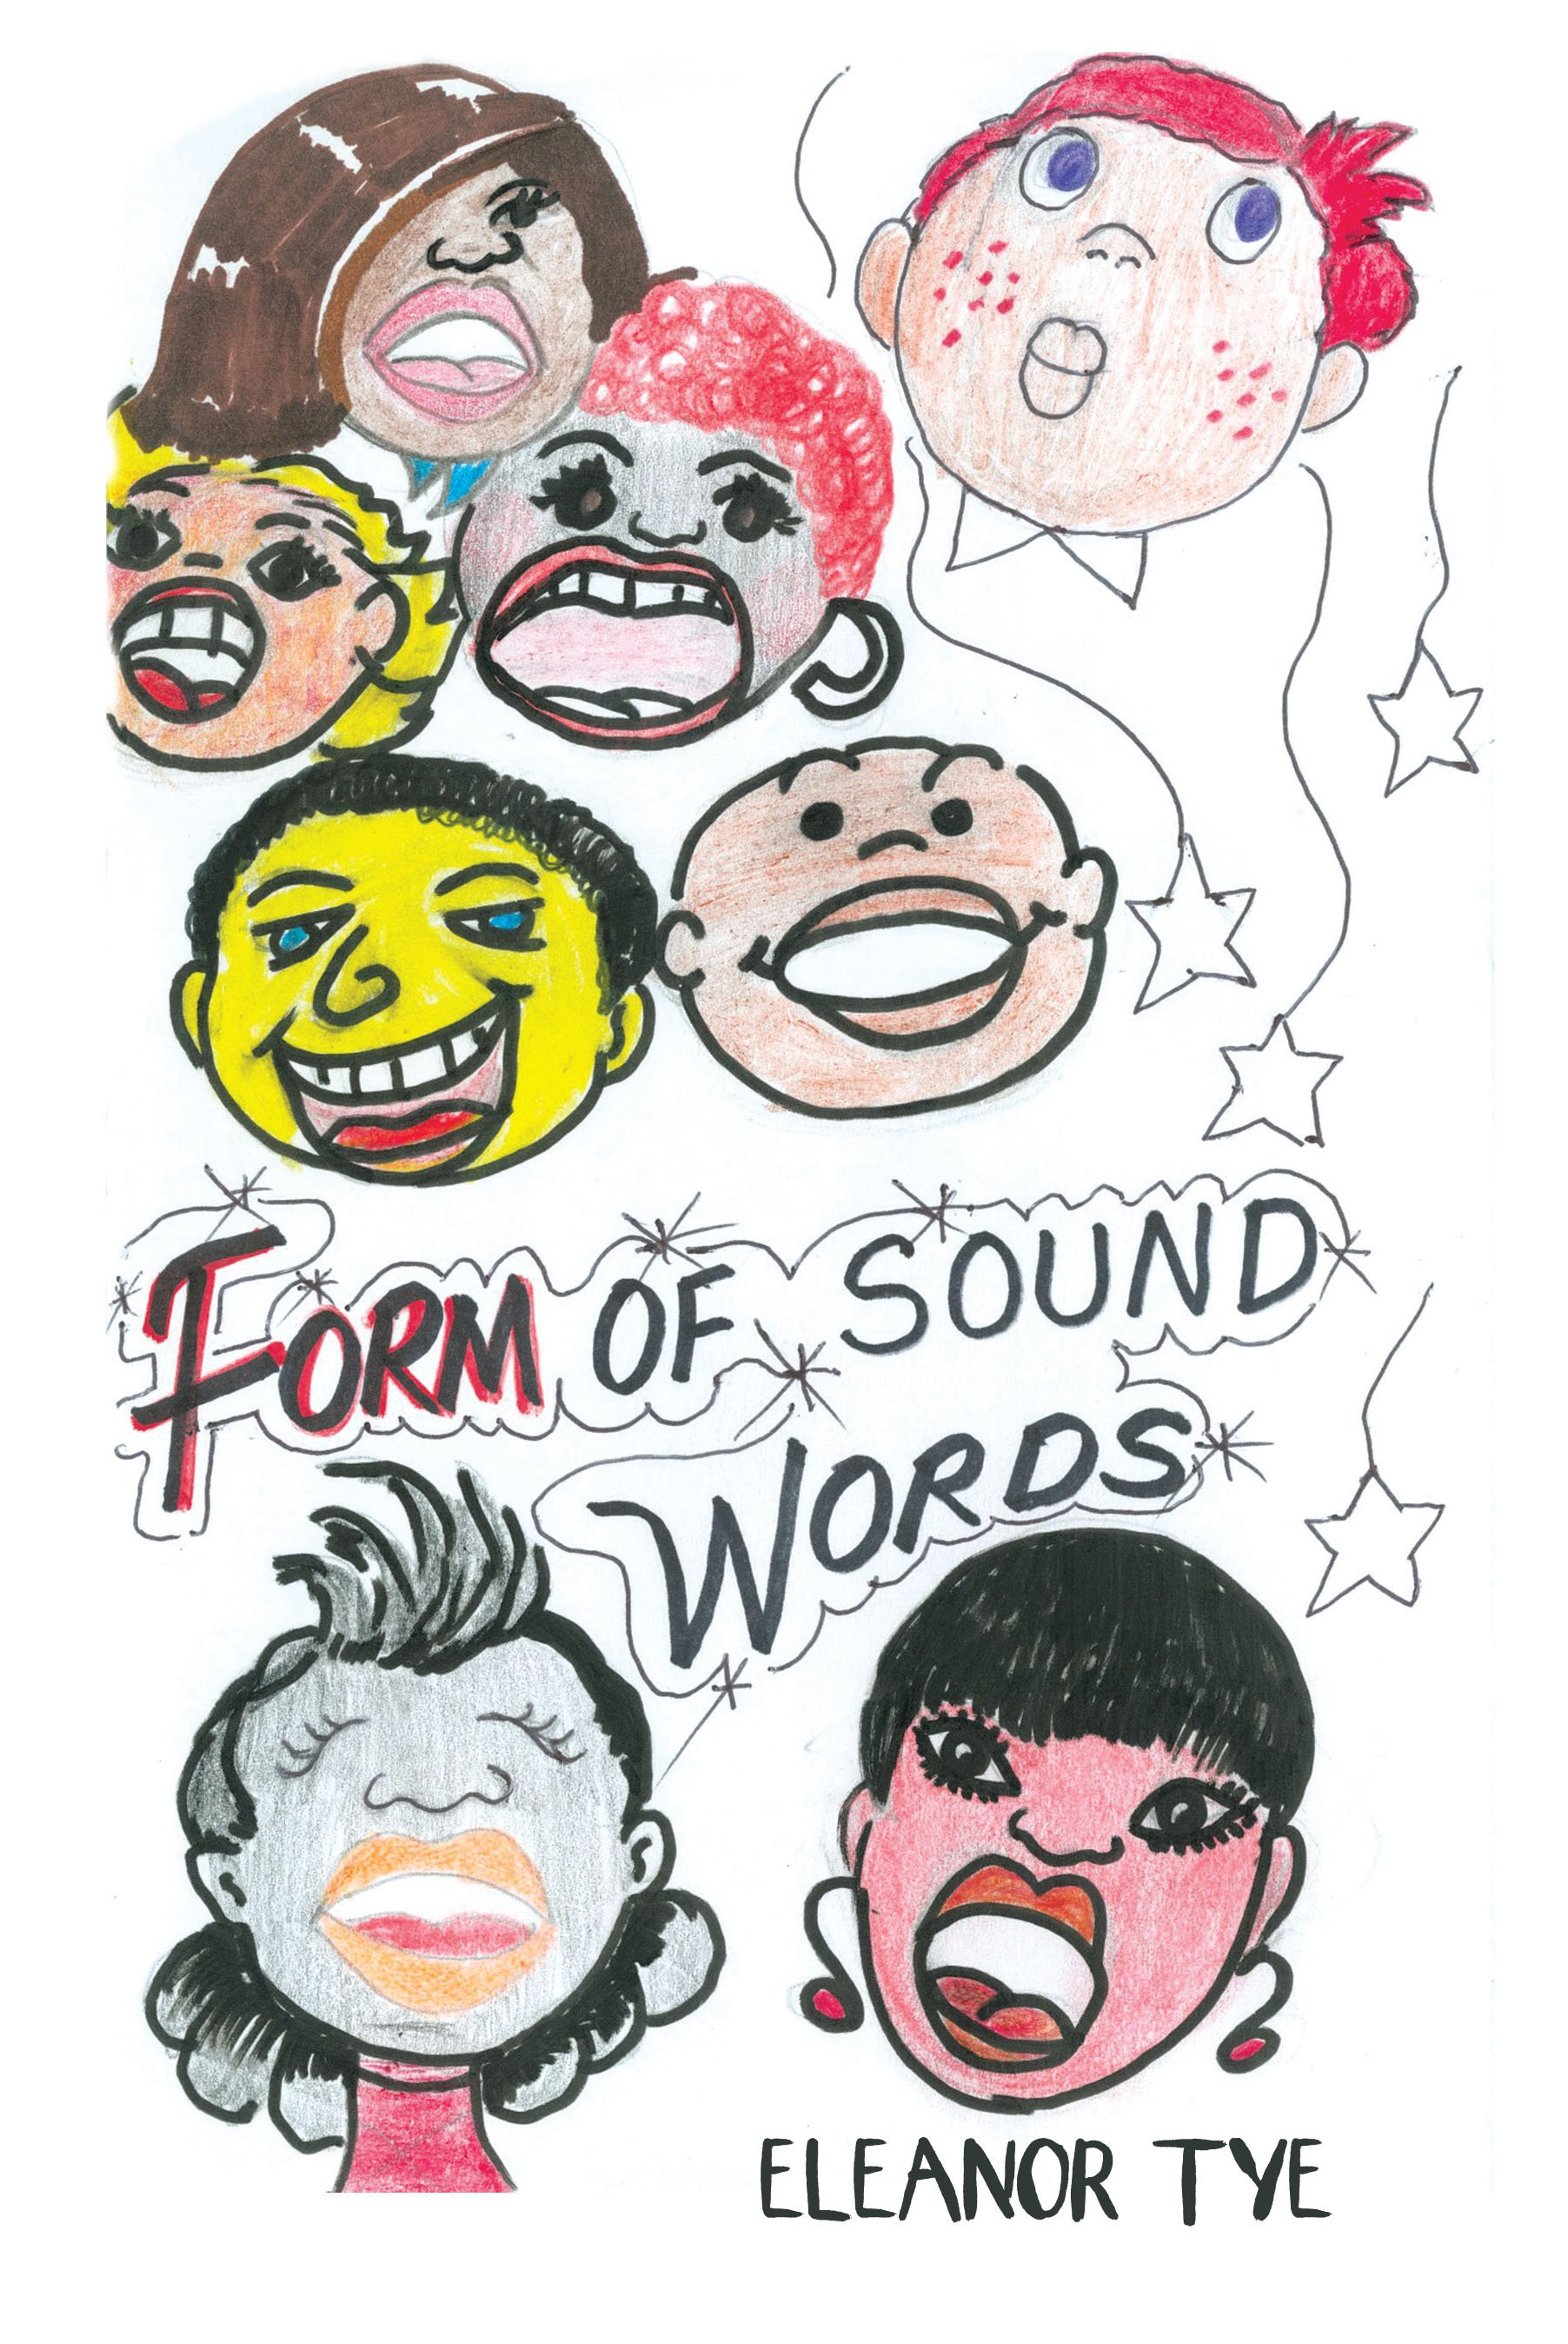 FORM OF SOUND
WORDS
ELEANOR TYE